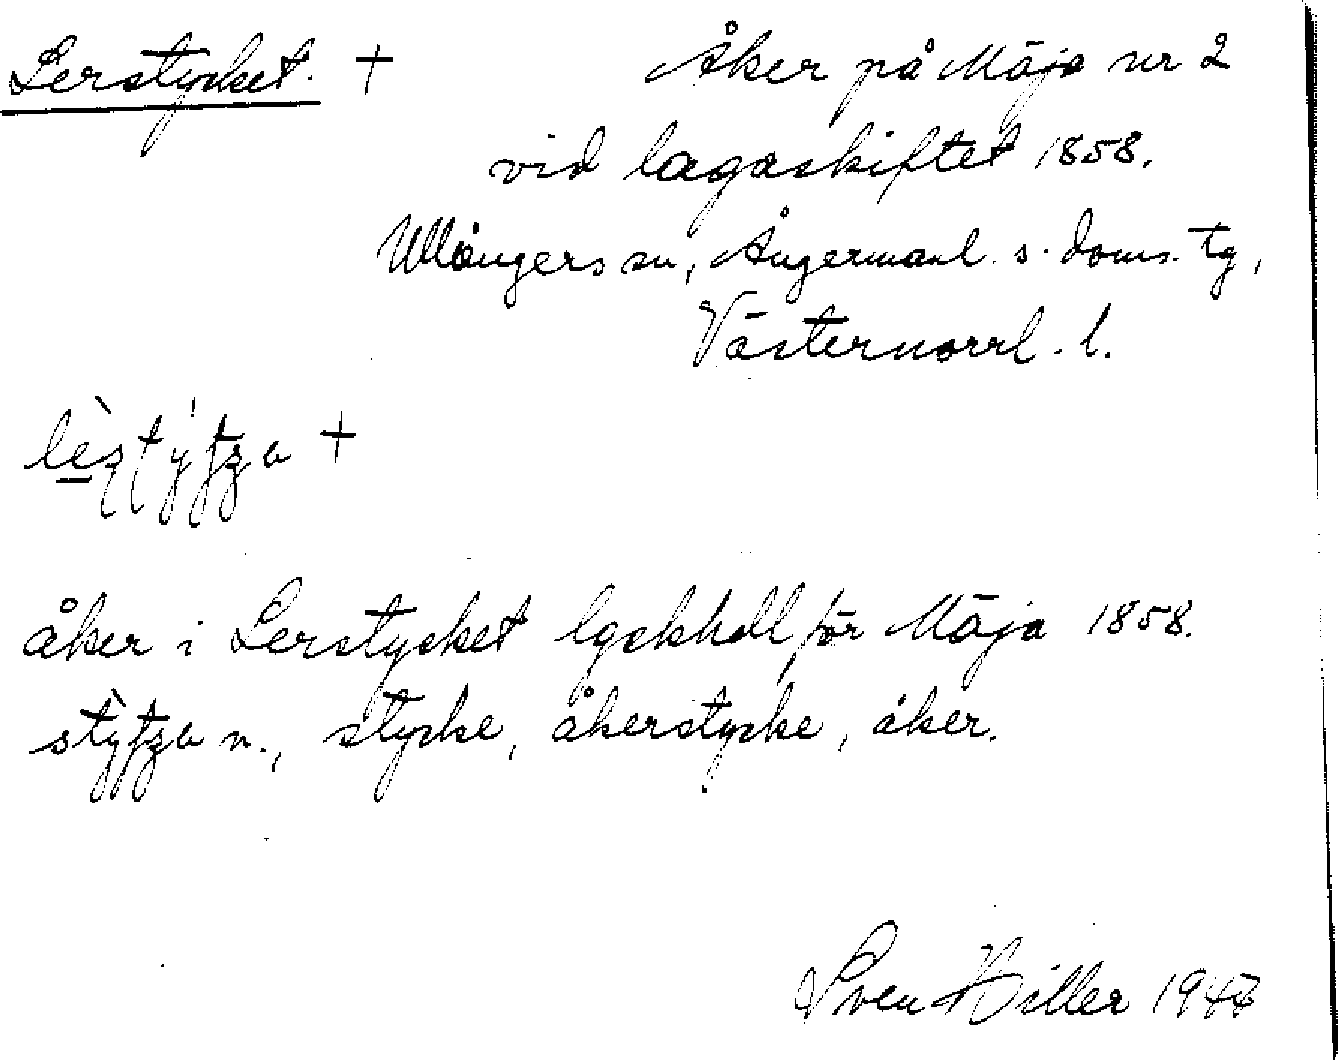 Lerstycket. + Åker på Mäja nr 2
vid lagaskiftet 1858.
Ullångers sn, Ångermanl. s. doms. tg,
Västernorrl. l.
+
åker i Lerstycket lgskhdl för Mäja 1858.
n., stycke, åkerstycke, åker.
Sven Hiller